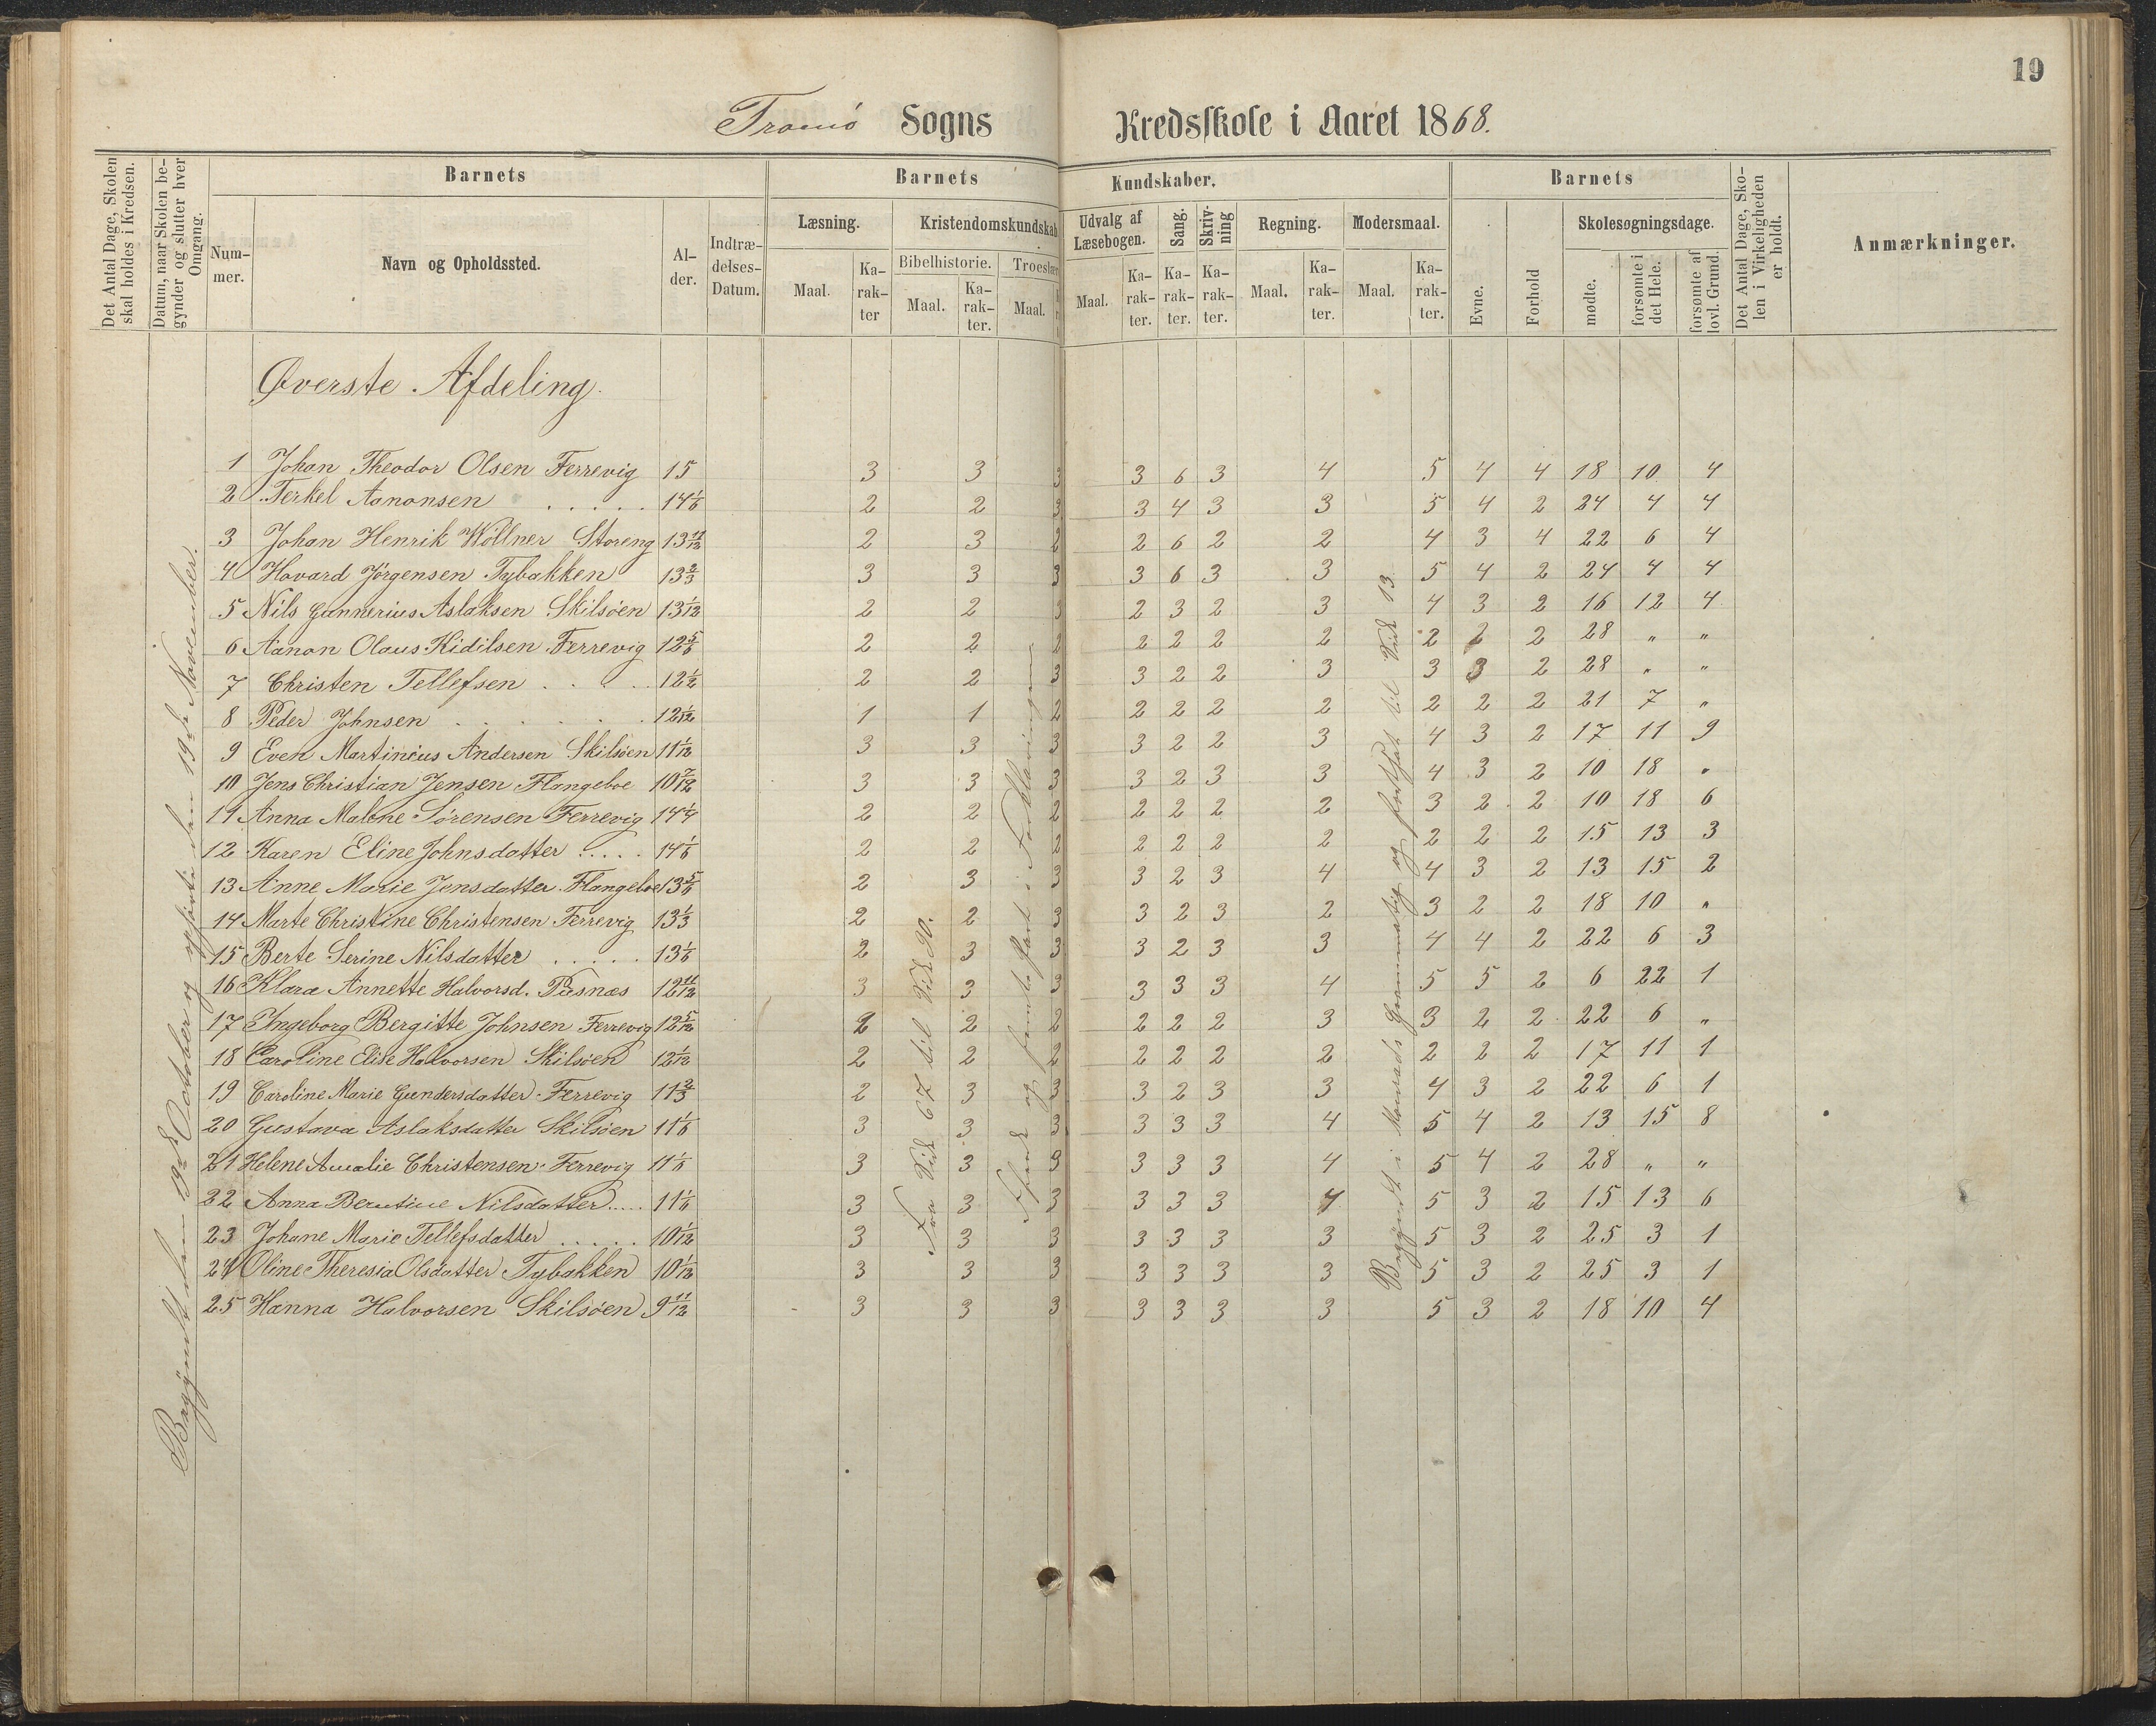 19
Tromö Sogns Kredsskole i Aaret 1868.
Det Antal Dage, Skolen skal holdes i Kredsen.
Datum, naar Skolen begynder og slutter hver Omgang.
Barnets
Nummer.
Navn og Opholdssted.
Alder.
Indtrædelses-Datum.
Barnets Kundskaber.
Læsning. Maal. Karakter
Kristendomskundskab
Bibelhistorie. Maal. Karakter.
Troeslær Maal.
Udvalg af Læsebogen. Maal. Karakter.
Sang. Karakter.
Skrivning Karakter.
Regning. Maal. Karakter.
Modersmaal. Maal. Karakter.
Barnets
Evne.
Forhold
Skolesøgningsdage.
mødte.
forsømte i det Hele.
forsømte af lovl. Grund.
Det Antal Dage, Skolen i Virkeligheden er holdt.
Anmærkninger.
Øverste Afdeling.
1 Johan Theodor Olsen Ferrevig 15 3 3 3 3 6 3 4 5 4 4 18 10 4
2 Terkel Aanonsen . . . . . 14 1/6 2 2 3 3 4 3 3 5 4 2 24 4 4
3 Johan Henrik Wöllner Storeng 13 11/12 2 3 2 2 6 2 2 4 3 4 22 6 4
4 Havard Jörgensen Tybakken 13 2/3 3 3 3 3 6 3 3 5 4 2 24 4 4
5 Nils Gunnerius Aslaksen Skilsöen 13 1/12 2 2 3 2 3 2 3 4 3 2 16 12 4
6 Aanon Olaus Kidilsen Ferrevig 12 5/6 2 2 2 2 2 2 2 2 2 2 28 " "
7 Christen Tellefsen . . . . 12 1/2 2 2 3 3 2 2 3 3 3 2 28 " "
8 Peder Johnsen . . . . . . 12 1/12 1 1 2 2 2 2 2 2 2 2 21 7 "
9 Even Martinéus Andersen Skilsöen 11 1/12 3 3 3 3 2 2 3 4 3 2 17 11 9
10 Jens Christian Jensen Flangeboe 10 7/12 3 3 3 3 2 3 3 4 3 2 10 18 "
11 Anna Malene Sörensen Ferrevig 14 1/4 2 2 2 2 2 2 2 3 2 2 10 18 6
12 Karen Eline Johnsdatter . . . . . 14 1/6 2 2 2 2 2 2 2 2 2 2 15 13 3
13 Anne Marie Jensdatter Flangeboe 13 5/6 2 3 3 3 2 3 4 4 3 2 13 15 2
14 Marte Christine Christensen Ferrevig 13 1/3 2 2 3 3 2 3 2 3 2 2 18 10 "
15 Berte Serine Nilsdatter . . . . . 13 1/6 2 3 3 3 2 3 3 4 4 2 22 6 3
16 Klara Annette Halvorsd. Pusnæs 12 11/12 3 3 3 3 3 3 4 5 5 2 6 22 1
17 Ingeborg Bergitte Johnsen Ferrevig 12 5/12 2 2 2 2 2 2 3 3 2 2 22 6 "
18 Caroline Elise Halvorsen Skilsöen 12 1/12 2 2 2 2 2 2 2 2 2 2 17 11 1
19 Caroline Marie Gundersdatter Ferrevig 11 2/3 2 3 3 3 2 3 3 4 3 2 22 6 1
20 Gustava Aslaksdatter Skilsöen 11 1/6 3 3 3 3 3 3 4 5 4 2 13 15 8
21 Helene Amalie Christensen Ferrevig 11 1/6 3 3 3 3 3 3 4 5 4 2 28 " "
22 Anna Berntine Nilsdatter . . . . . 11 1/6 3 3 3 3 3 3 4 5 3 2 15 13 6
23 Johane Marie Tellefsdatter . . . . . 10 1/12 3 3 3 3 3 3 3 5 3 2 25 3 1
24 Oline Theresia Olsdatter Tybakken 10 1/12 3 3 3 3 3 3 3 5 3 2 25 3 1
25 Hanna Halvorsen Skilsöen 9 11/12 3 3 3 3 3 3 3 5 3 2 18 10 4
Begyndt den 19de October og ophörte den 19de November.
Fra Side 67 til Side 90.
og femte Part i Forklaringen
Begyndt i Monrads Grammatig og fortsat til Side 13